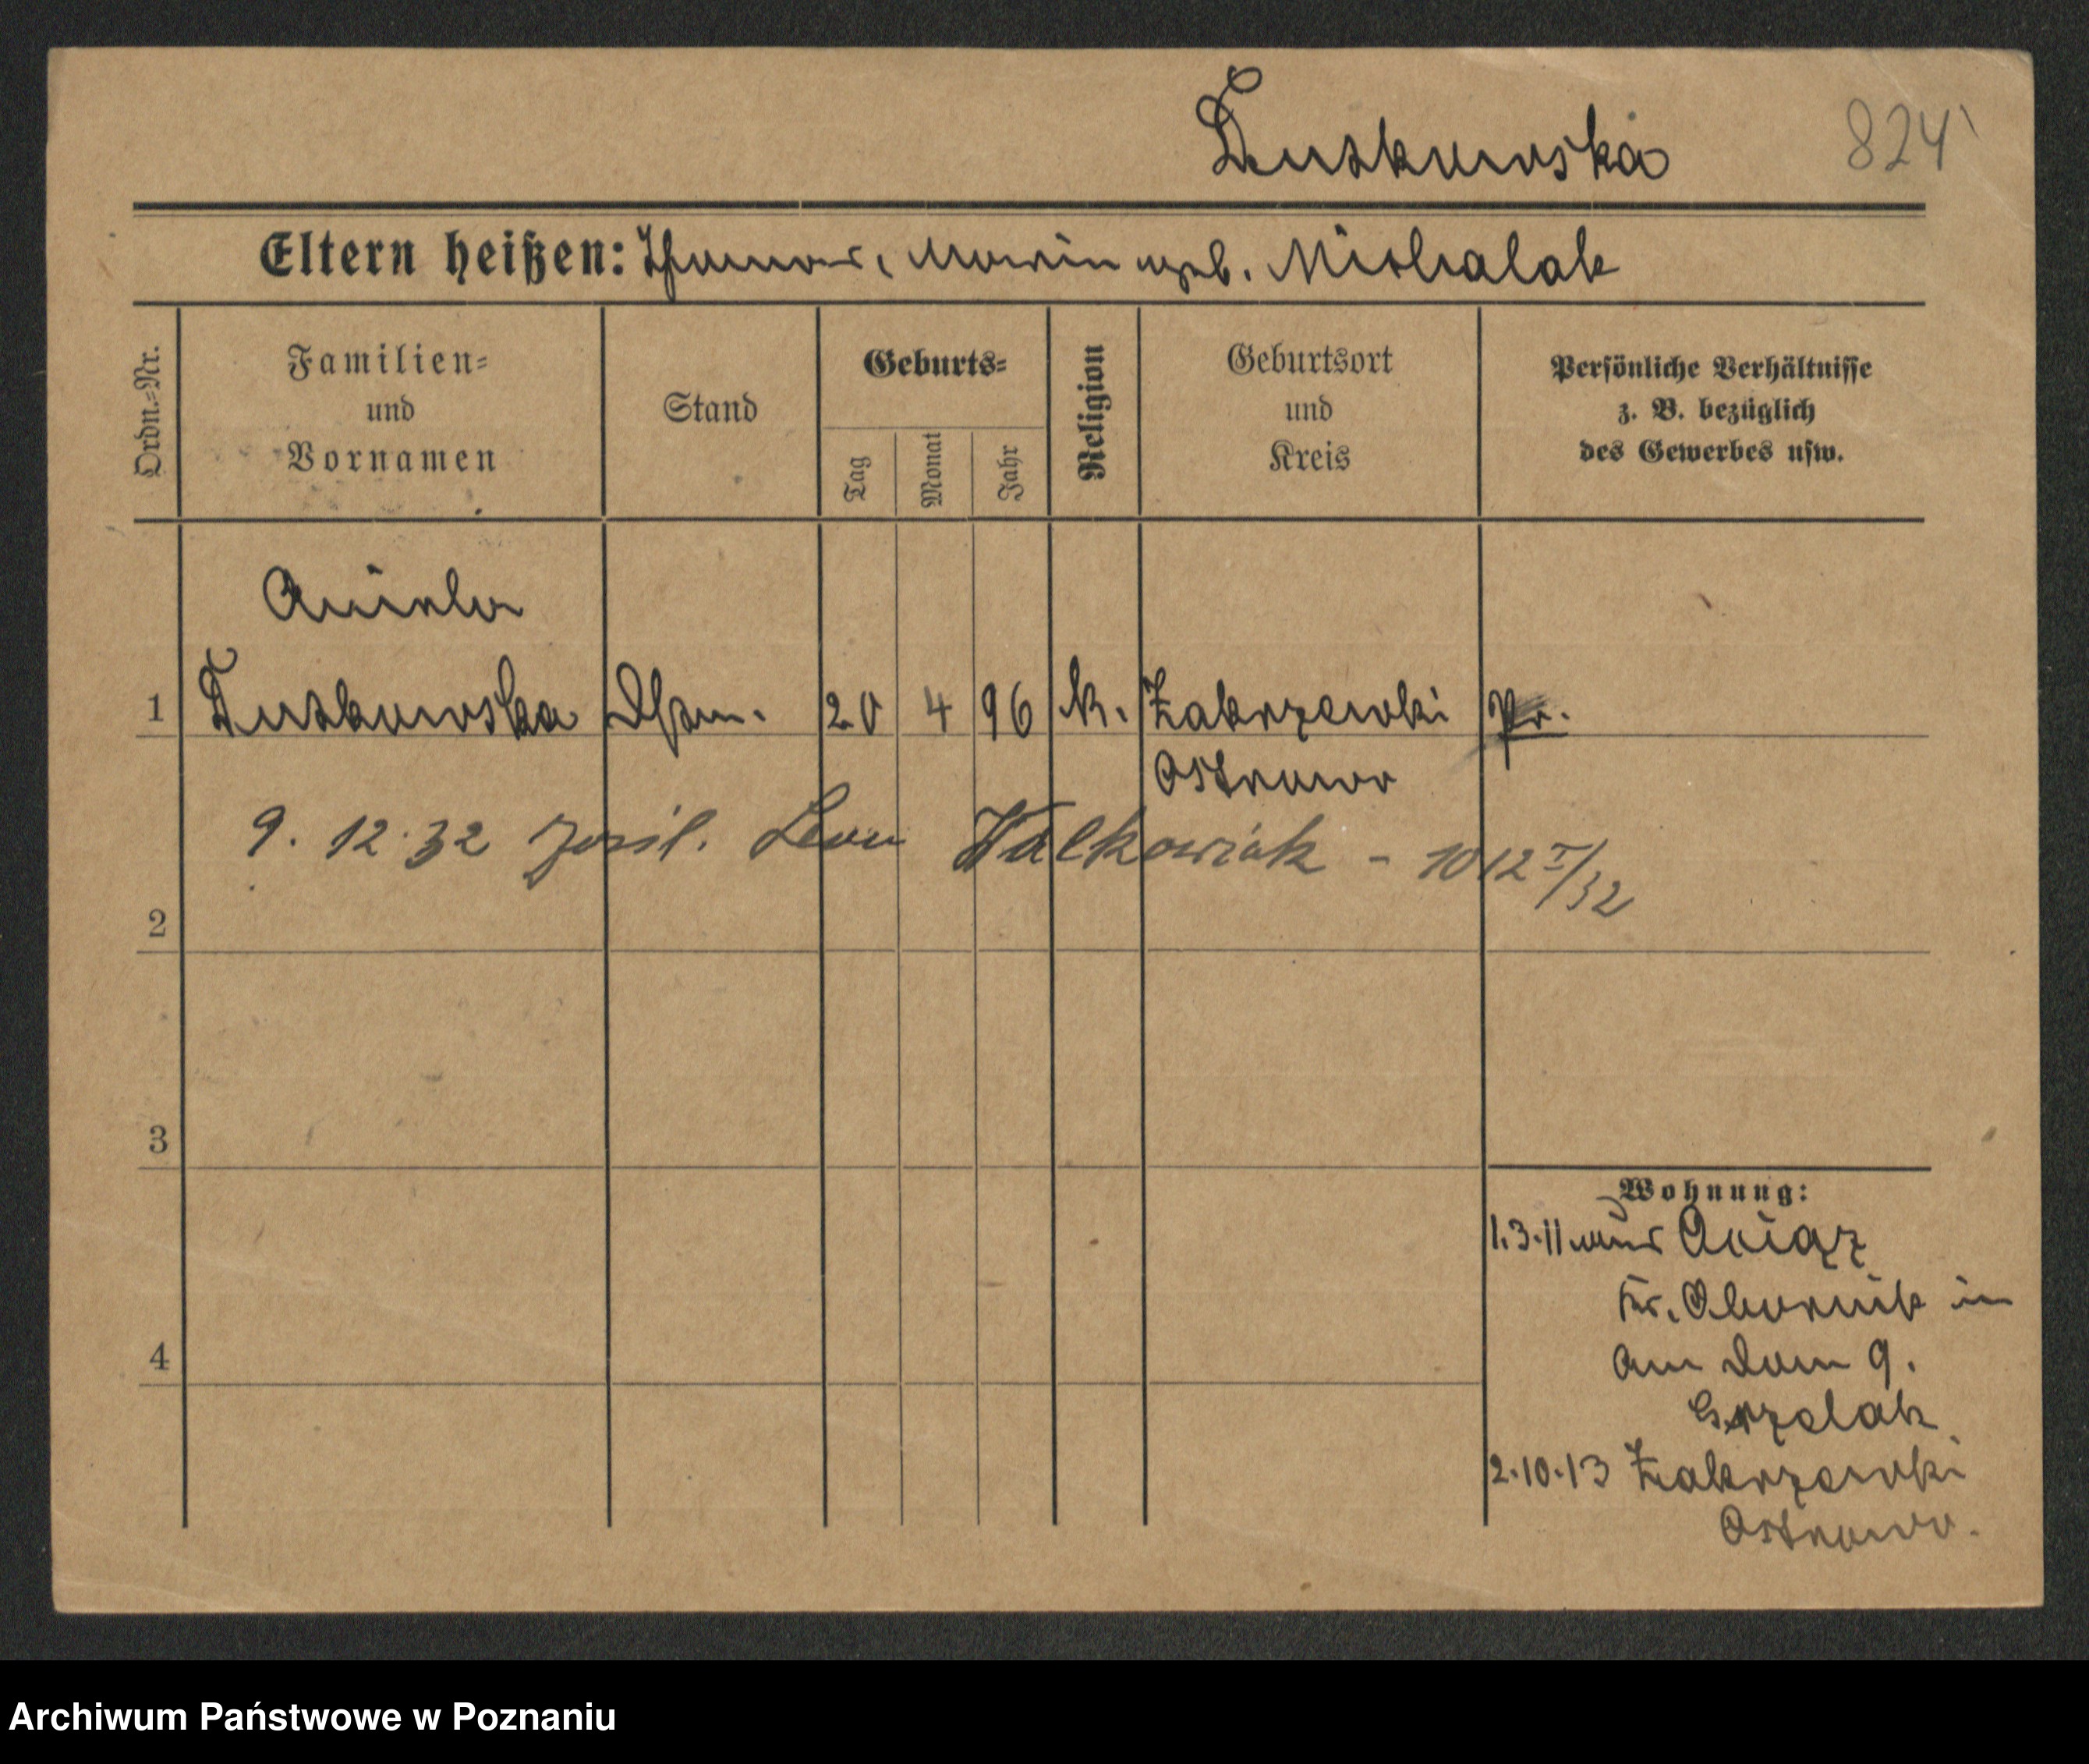 Duszkowska 824
Eltern heißen: Thomas, Marie geb. Michalak
Ordn.=Nr.
Familien=
und
Vornamen
Stand
Geburts=
Tag
Monat
Jahr
Religion
Geburtsort
und
Kreis
Persönliche Verhältnisse
z. B. bezüglich
des Gewerbes usw.
1 20 4 96 k. Zakrzewki Pr.
Ostrowo
9. 12. 32 Leon Walkowiak - 10/12 I/32
2
3
4
Wohnung:
1.3.11 aus
Kr. Obornik in
Am Dom 9.
Grzelak
2.10.13 Zakrzewki
Ostrowo.
Archiwum Państwowe w Poznaniu